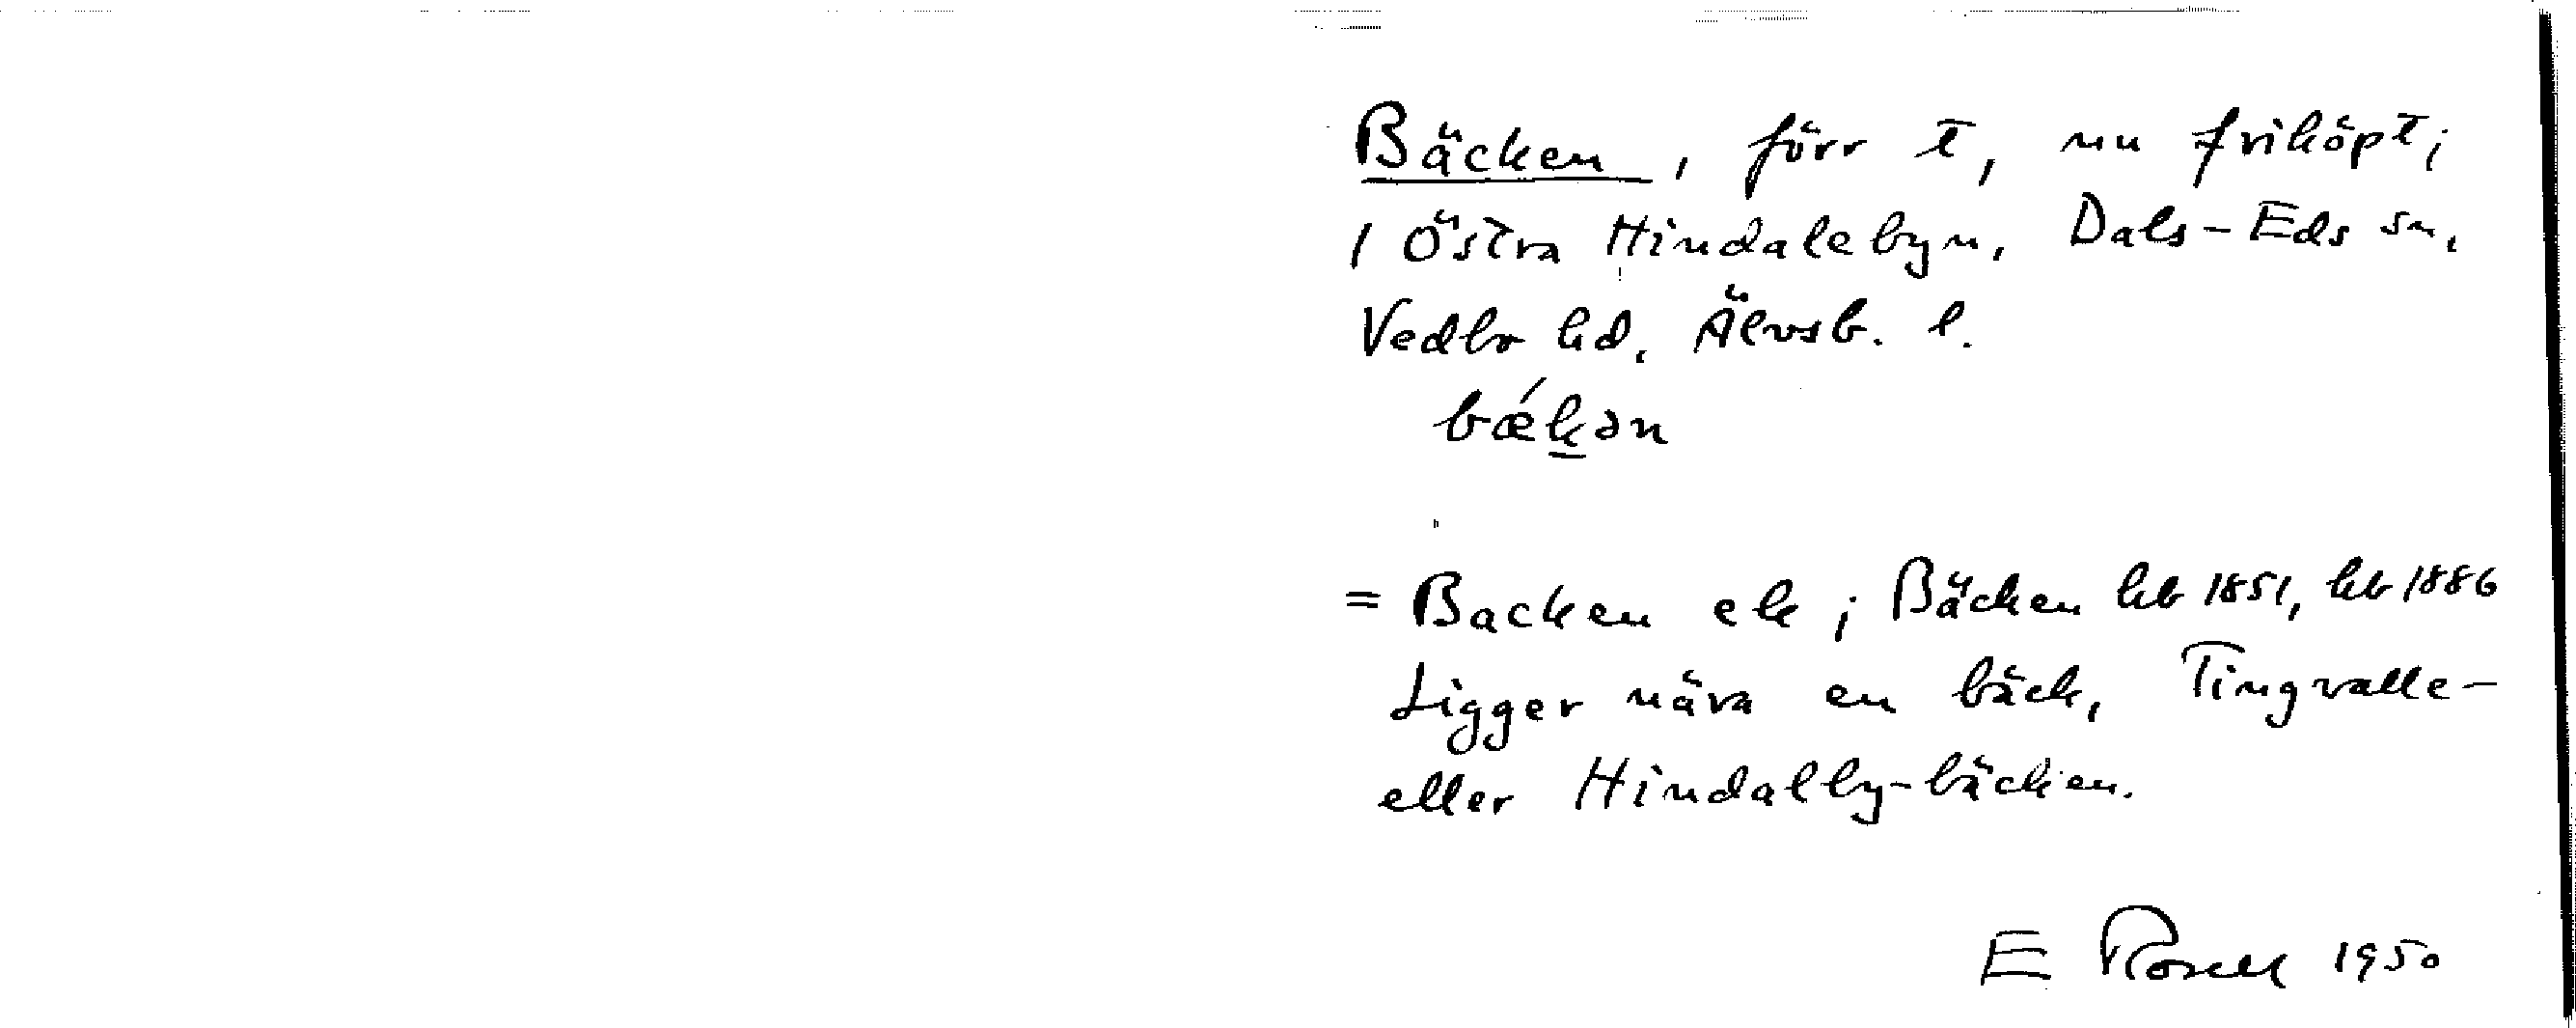 Bäcken, förr t, nu friköpt;
i Östra Hindalebyn, Dals-Eds sn,
Vedbo hd, Älvsb. l.
bǽk̲ən
= Backen ek; Bäcken hb 1851, hb 1886
Ligger nära en bäck, Tingvalle-
eller Hindalby-bäcken.
E Rosell 1950